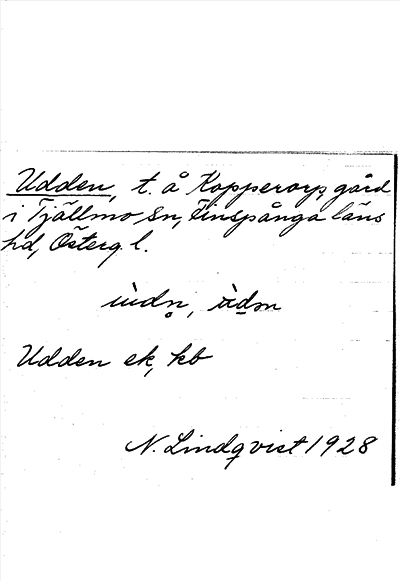 Udden, t. å Kopperorp, gård
i Tjällmo sn, Finspånga läns
hd, Österg. l.
ùdn̥,
Udden ek, kb
N. Lindqvist 1928